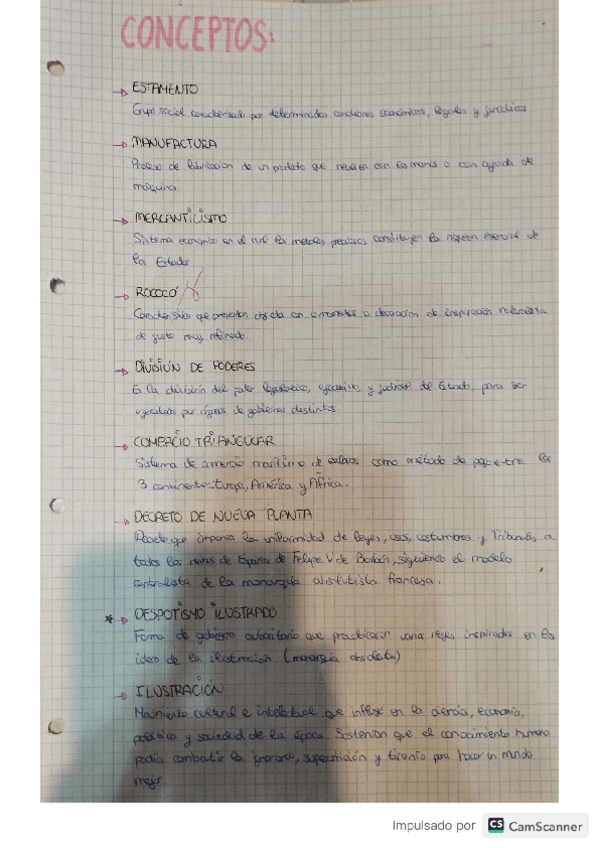 CONCEPTOS:
→ ESTAMENTO
Grupo social caracterizado por determinadas condiciones económicas, legales y jurídicas.
→ MANUFACTURA
Proceso de fabricación de un producto que necesita con las manos o con ayuda de
máquina.
→ MERCANTILISMO
Sistema económico en el cual los metales preciosos constituyen la riqueza esencial de
los Estados
→ ROCOCÓ
Característico que presentan objeto con ornamentos o decoración de inspiración
de gusto muy refinado.
→ DIVISIÓN DE PODERES
Es la división del poder legislativo, ejecutivo, y judicial del Estado, para ser
ejercitado por órganos de gobiernos distintos
→ COMERCIO TRIANGULAR
Sistema de comercio marítimo de esclavos como método de pago entre los
3 continentes: Europa, América y África.
→ DECRETO DE NUEVA PLANTA
que imponía la uniformidad de leyes, usos, costumbres y Tribunales, a
todos los reinos de España de Felipe V de Borbón, siguiendo el modelo
centralista de la monarquía absolutista francesa.
* → DESPOTISMO ILUSTRADO
Forma de gobierno autoritario que practicaron varios reyes inspirados en las
ideas de la ilustración (monarquía absoluta)
→ ILUSTRACIÓN
Movimiento cultural e intelectual que influye en la ciencia, economía,
política y sociedad de la época. Sostenían que el conocimiento humano
podía combatir la ignorancia, superstición y tiranía para hacer un mundo
mejor.
Impulsado por CS CamScanner